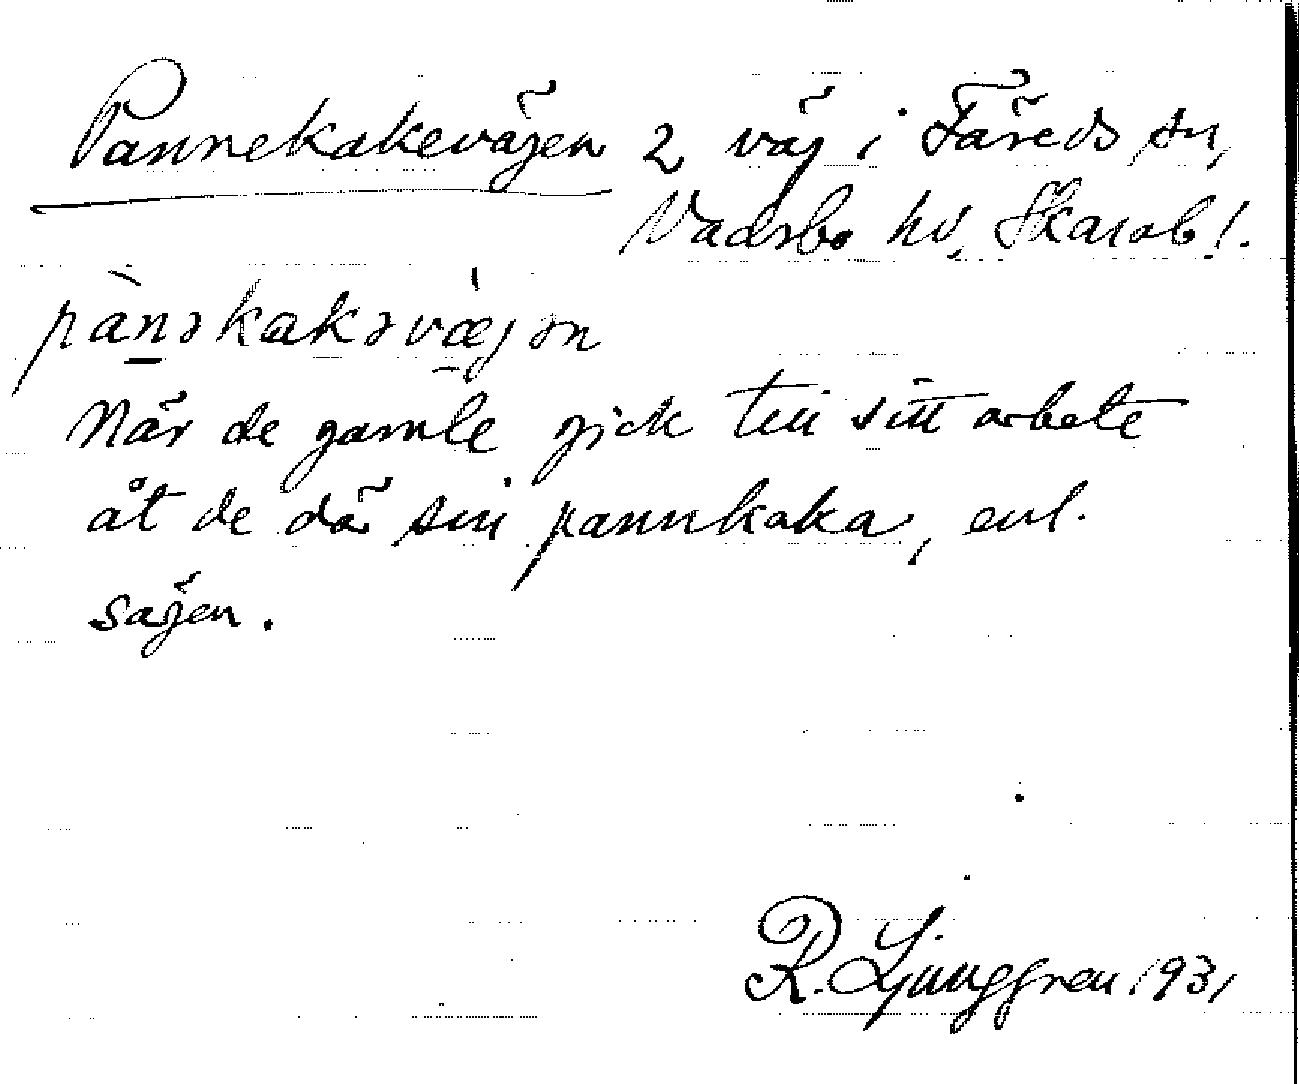 Pannekakevägen 2 väg i Färeds sn,
Vadsbo hd, Skarab l.
pànəkakəvæ̀jən
När de gamle gick till sitt arbete
åt de där sin pannkaka, enl.
sägen.
R. Ljunggren 1931